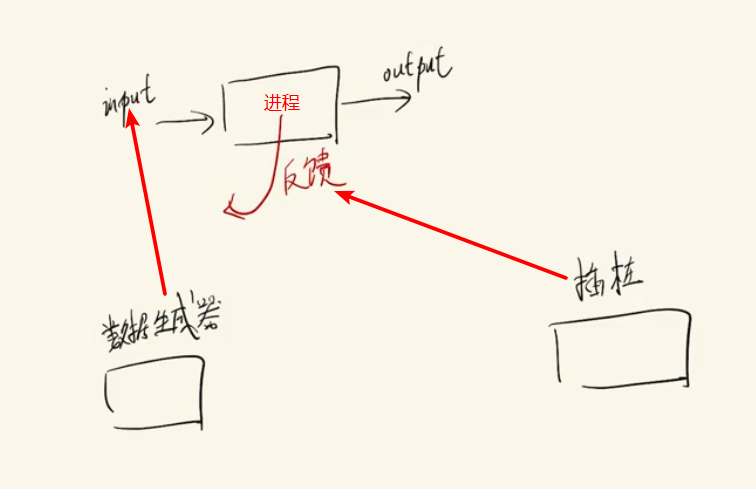 input
进程
output
反馈
数据生成器
插桩